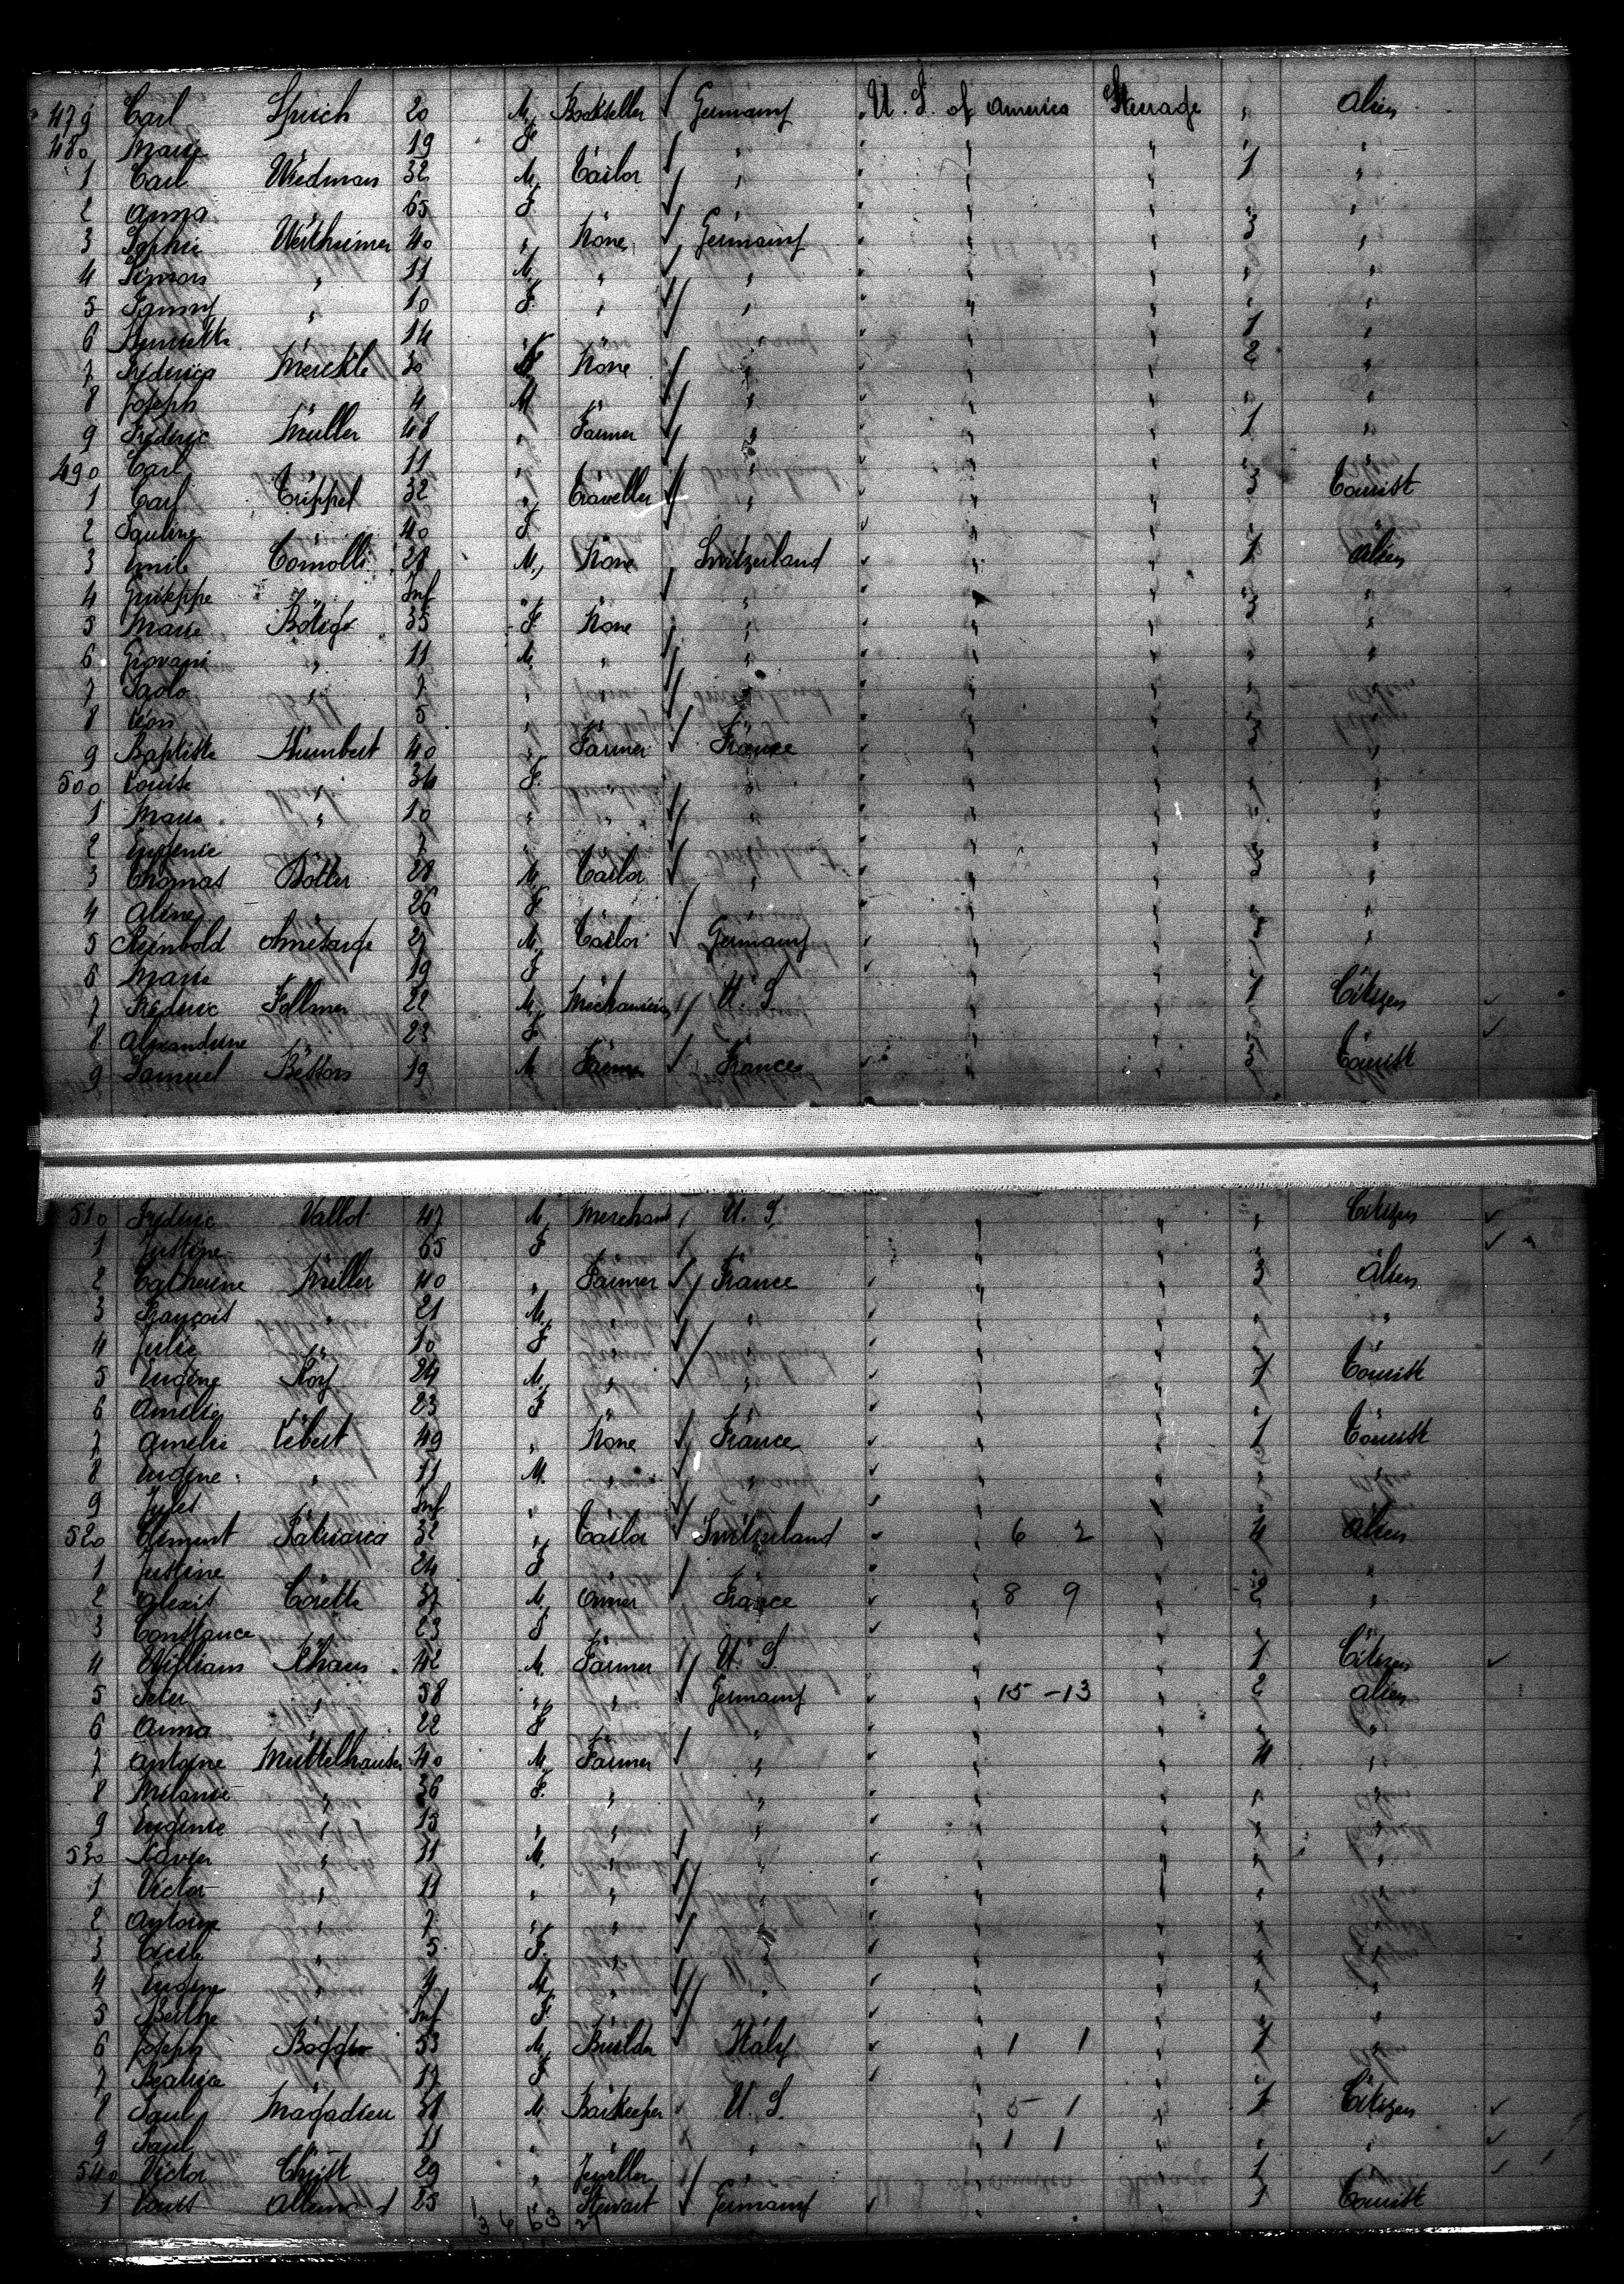 479 Carl Spirch 20 M, Bookseller Germany U. S. of America Steerage " Alien
480 Marie " 19 F " " " " "
1 Carl Wiedman 32 M, Tailor " " " 1 "
2 Anna " 65 F " " " "
3 Sophie Wertheimer 40 " None Germany " " 3 "
4 Simon " 11 M, " " " " " "
5 Fanny " 10 F. " " " " " "
6 Henriette " 14 " " " " 1 "
7 Frederica Merckle 30 F None " " " 2 "
8 Joseph " 4 M " " " " " "
9 Frederic Müller 48 " Farmer " " " 1 "
490 Carl " 11 " " " " " "
1 Carl Trippel 32 " Traveller " " " 3 Tourist
2 Pauline " 40 F " " " "
3 Emile Comolli 28 M, None Switzerland " " 1 Alien
4 Giuseppe " Inf " " " " " "
5 Marie 35 F None " " " 3 "
6 Giovani " 11 M, " " " " " "
7 Paolo " 7 " " " " " " "
8 Leon " 5 " " " " " " "
9 Baptiste Humbert 40 " Farmer France " " 3 "
500 Louise " 34 F. " " " " " "
1 Marie " 10 " " " " " " "
2 Eugenie " 7 " " " " " " "
3 Thomas Dotter 28 M, Tailor " " " 3 "
4 Aline " 26 F " " " " "
5 Reinbold 27 M, Tailor Germany " " "
6 Marie " 19 F " " " "
7 Frederic Follmer 22 M, Mechanician U. S. " " 1 Citizen
8 Alexandrine " 23 F " " " "
9 Samuel 19 M Farmer France " " 3 Tourist
510 Frederic Vallot 47 M, Merchant U. S. " " " Citizen
1 Justine " 65 F " " "
2 Catherine Müller 40 " Farmer France " " 3 Alien
3 François " 21 M, " " " " " "
4 Julie " 10 F " " " " " "
5 Eugène Roy 24 M, " " " " 1 Tourist
6 Amélie " 23 F " " " "
7 Amelie Lebert 49 " None France " " 1 Tourist
8 Eugène " 11 M. " " " " " "
9 Jules " Inf " " " " "
520 Clement Patriarca 32 " Tailor Switzerland 6 2 " 4 Alien
1 Justine " 24 F " " " " "
2 Alexis Corette 37 M, France 8 9 " 2 "
3 Constance " 23 F " " "
4 William Khaus 42 M, Farmer U. S. " " 1 Citizen
5 Peter " 58 " " Germany 15 - 13 " 2 Alien
6 Anna " 22 F " " " " "
7 Antoine Müttelhauser 40 M, Farmer " " " 4 "
8 Melanie " 36 F. " " " " " "
9 Eugenie " 15 " " " " " " "
530 Xavier " 11 M, " " " " " "
1 Victor " 11 " " " " " " "
2 Antoine " 7 " " " " " " "
3 Cecile " 5 F. " " " " " "
4 Eugène " 4 M, " " " " " "
5 Berthe " Inf F. " " " " " "
6 Joseph 53 M, Builder Italy 1 1 " 1 "
7 Beatrice " 17 F " "
8 Paul Magadieu 31 M. Barkeeper U. S. 5 1 " 1 Citizen
9 Paul " 11 " " " 1 1 " " "
540 Victor Christ 29 " Jeweller " 1 "
1 Louis Alleman d 25 " Stewart Germany 1 Tourist